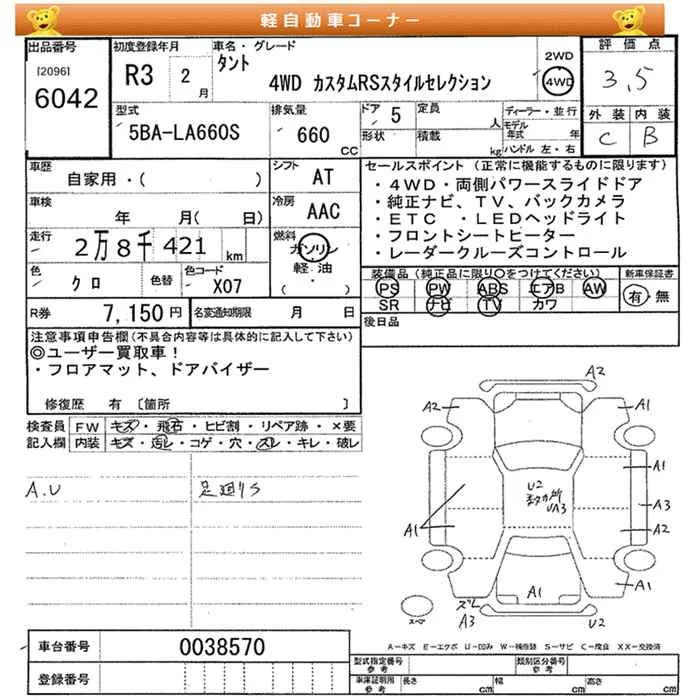 軽自動車コーナー
出品番号
[2096]
6042
初度登録年月
R3 2 月
車名・グレード
タント
4WD カスタムRSスタイルセレクション
2WD
4WD
評価点
3,5
外装 内装
C B
型式
5BA-LA660S
排気量
660 cc
ドア 5
形状
定員 人
積載 kg
ディーラー・並行
モデル年式 年
ハンドル 左・右
車歴
自家用・( )
シフト
AT
車検
年 月( 日)
冷房
AAC
走行
2万8千421 km
燃料
ガソリン
軽・油
・( )
色
クロ
色替
色コード
X07
R券 7,150円
名変通知期限 月 日
セールスポイント (正常に機能するものに限ります)
・4WD・両側パワースライドドア
・純正ナビ、TV、バックカメラ
・ETC ・LEDヘッドライト
・フロントシートヒーター
・レーダークルーズコントロール
装備品(純正品に限り○をつけてください)
PS PW ABS エアB AW
SR ナビ TV カワ
新車保証書
有・無
後日品
注意事項申告欄(不具合内容等は具体的に記入して下さい)
◎ユーザー買取車!
・フロアマット、ドアバイザー
修復歴 有 〔箇所 〕
検査員記入欄
FW キズ・飛石・ヒビ割・リペア跡・×要
内装 キズ・汚レ・コゲ・穴・スレ・キレ・破レ
A.U
足廻りS
A2
A2
A1
A1
U2
UA3
A3
A1
A2
A1
A1
スレ
A3
U2
スペア
A=キズ E=エクボ U=凹み W=補修跡 S=サビ C=腐食 XX=交換済
車台番号 0038570
登録番号
型式指定番号 参考
類別区分番号 参考
車庫証明用 参考
長さ cm
幅 cm
高さ cm